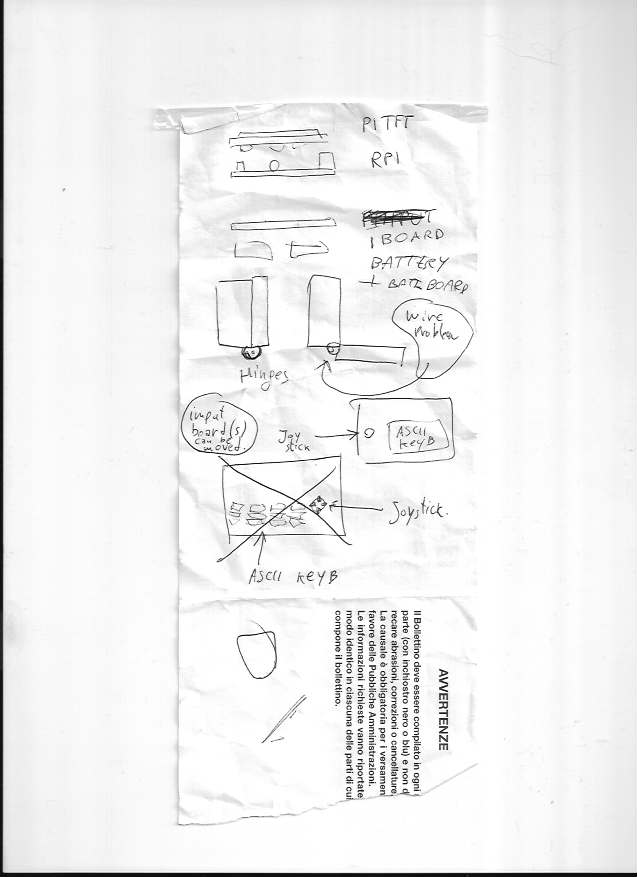 PITFT
RPI
I BOARD
BATTERY
+ BATEBOARD
wire
problem
Hinges
imput
board(s)
can be
moved.
Joy
stick
ASCII
KEYB
Joystick.
ASCII KEYB
AVVERTENZE
Il Bollettino deve essere compilato in ogni
parte (con inchiostro nero o blu) e non d
recare abrasioni, correzioni o cancellature.
La causale è obbligatoria per i versamen
favore delle Pubbliche Amministrazioni.
Le informazioni richieste vanno riportate
modo identico in ciascuna delle parti di cui
compone il bollettino.